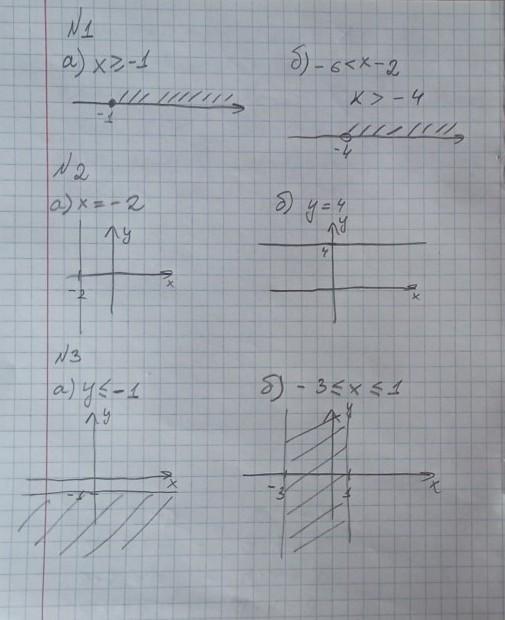 №1
а) x ≥ -1
-1
б) -6 < x - 2
x > -4
-4
№2
а) x = -2
y
-2
x
б) y = 4
y
4
x
№3
а) y ≤ -1
y
x
-1
б) -3 ≤ x ≤ 1
y
-3
1
x